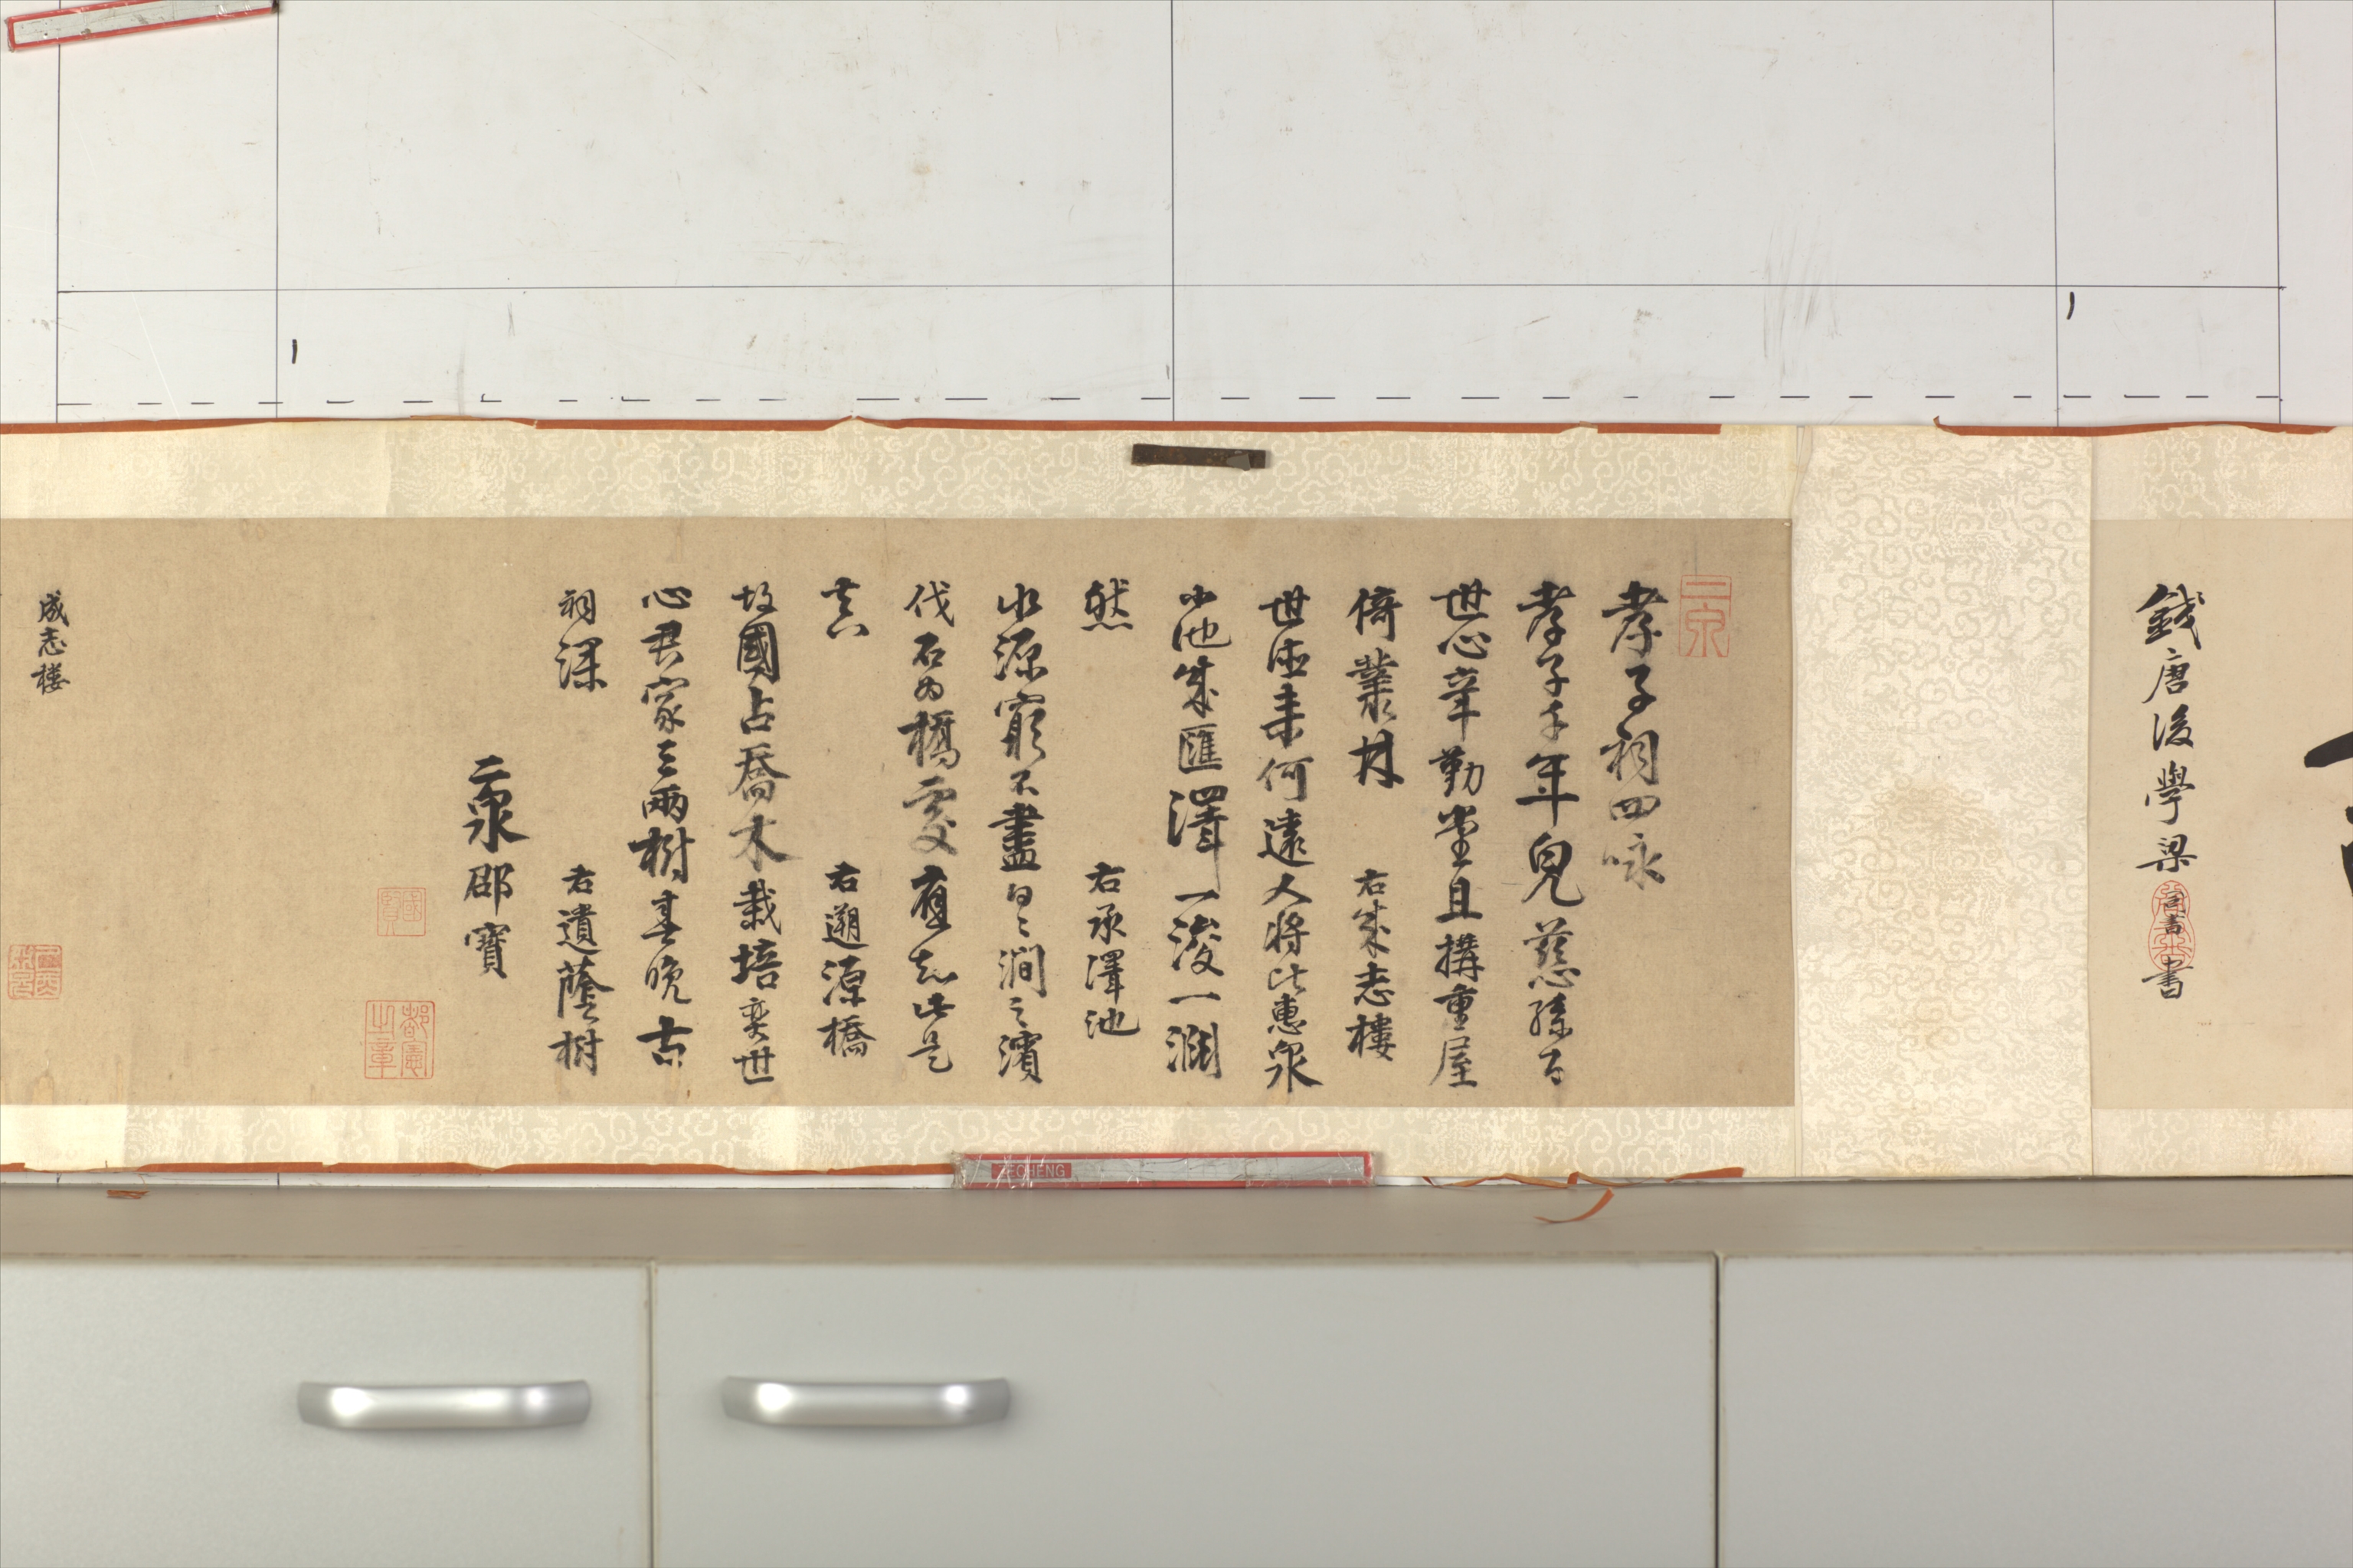 錢唐後學梁同書書
二泉
孝子祠四咏
孝子千年兒慈孫百
世心辛勤堂且搆重屋
倚叢林 右成志樓
世德來何遠人將比惠泉
小池成匯澤一浚一淵
然 右承澤池
水源窮不盡日〻澗之濱
伐石為橋處應知此是
真 右遡源橋
故國占喬木栽培奕世
心君家三兩樹春晚古
祠深 右遺蔭樹
二泉邵寶
國賢
都憲之章
成志樓
ZECHENG